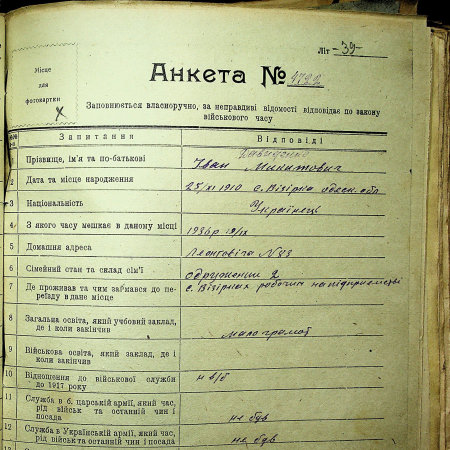 Літ -39-
Місце
для
фотокартки
Анкета № 4722
Заповнюється власноручно, за неправдиві відомості відповідає по закону
військового часу
Запитання Відповіді
1 Прізвище, ім'я та по-батькові Давиденко
Іван Микитович
2 Дата та місце народження 25/XI 1910 с. Візірка одеск. обл
3 Національність Українець
4 З якого часу мешкає в даному місці 1936р 19/IX
5 Домашня адреса
6 Сімейний стан та склад сім'ї одружений 2
7 Де проживав та чим займався до пе-
реїзду в дане місце с. Візірка робочий на підприємстві
8 Загальна освіта, який учбовий заклад,
де і коли закінчив мало грамот
9 Військова освіта, який заклад, де і
коли закінчив
10 Відношення до військової служби
до 1917 року н в/б
11 Служба в б. царській армії, який час,
рід військ та останній чин і
посада не був
12 Служба в Українській армії, який час,
рід військ та останній чин і посада не був